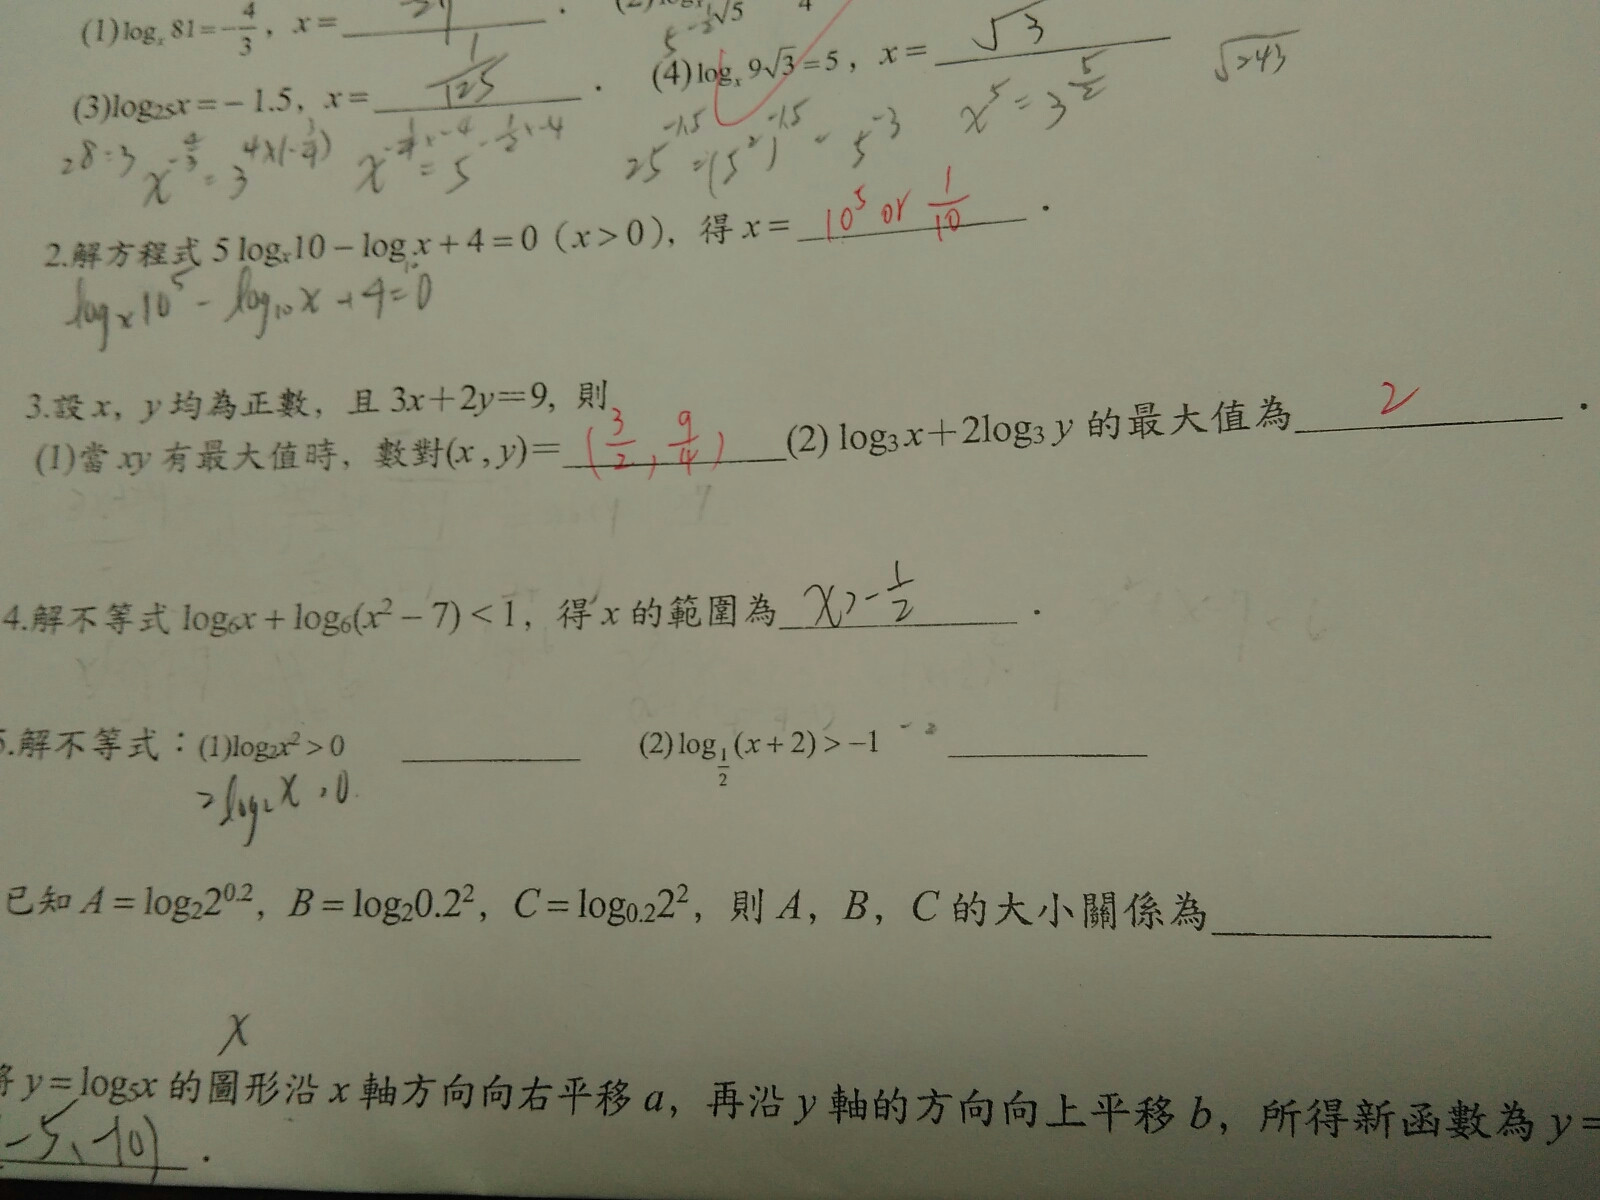 (1)logₓ 81=-4/3，x=
(3)log₂₅x=-1.5，x= 1/125 . (4)logₓ 9√3=5，x= √3 √243
x^(-4/3)=3^(4×(-3/4)) 25^(-1.5)=(5²)^(-1.5) 5^(-3) x⁵=3^(5/2)
2.解方程式 5 logₓ10-log x+4=0（x>0），得 x= 10⁵ or 1/10 .
logₓ10⁵-log₁₀x+4=0
3.設 x，y 均為正數，且 3x+2y=9，則
(1)當 xy 有最大值時，數對(x , y)= (3/2, 9/4) (2) log₃x+2log₃y 的最大值為 2 .
4.解不等式 log₆x+log₆(x²-7)<1，得 x 的範圍為 x>-1/2 .
5.解不等式：(1)log₂x²>0 (2)log_(1/2)(x+2)>-1
2log₂x>0
已知 A=log₂2^0.2，B=log₂0.2²，C=log₀.₂2²，則 A，B，C 的大小關係為
x
將 y=log₅x 的圖形沿 x 軸方向向右平移 a，再沿 y 軸的方向向上平移 b，所得新函數為 y=
-5、-10) .